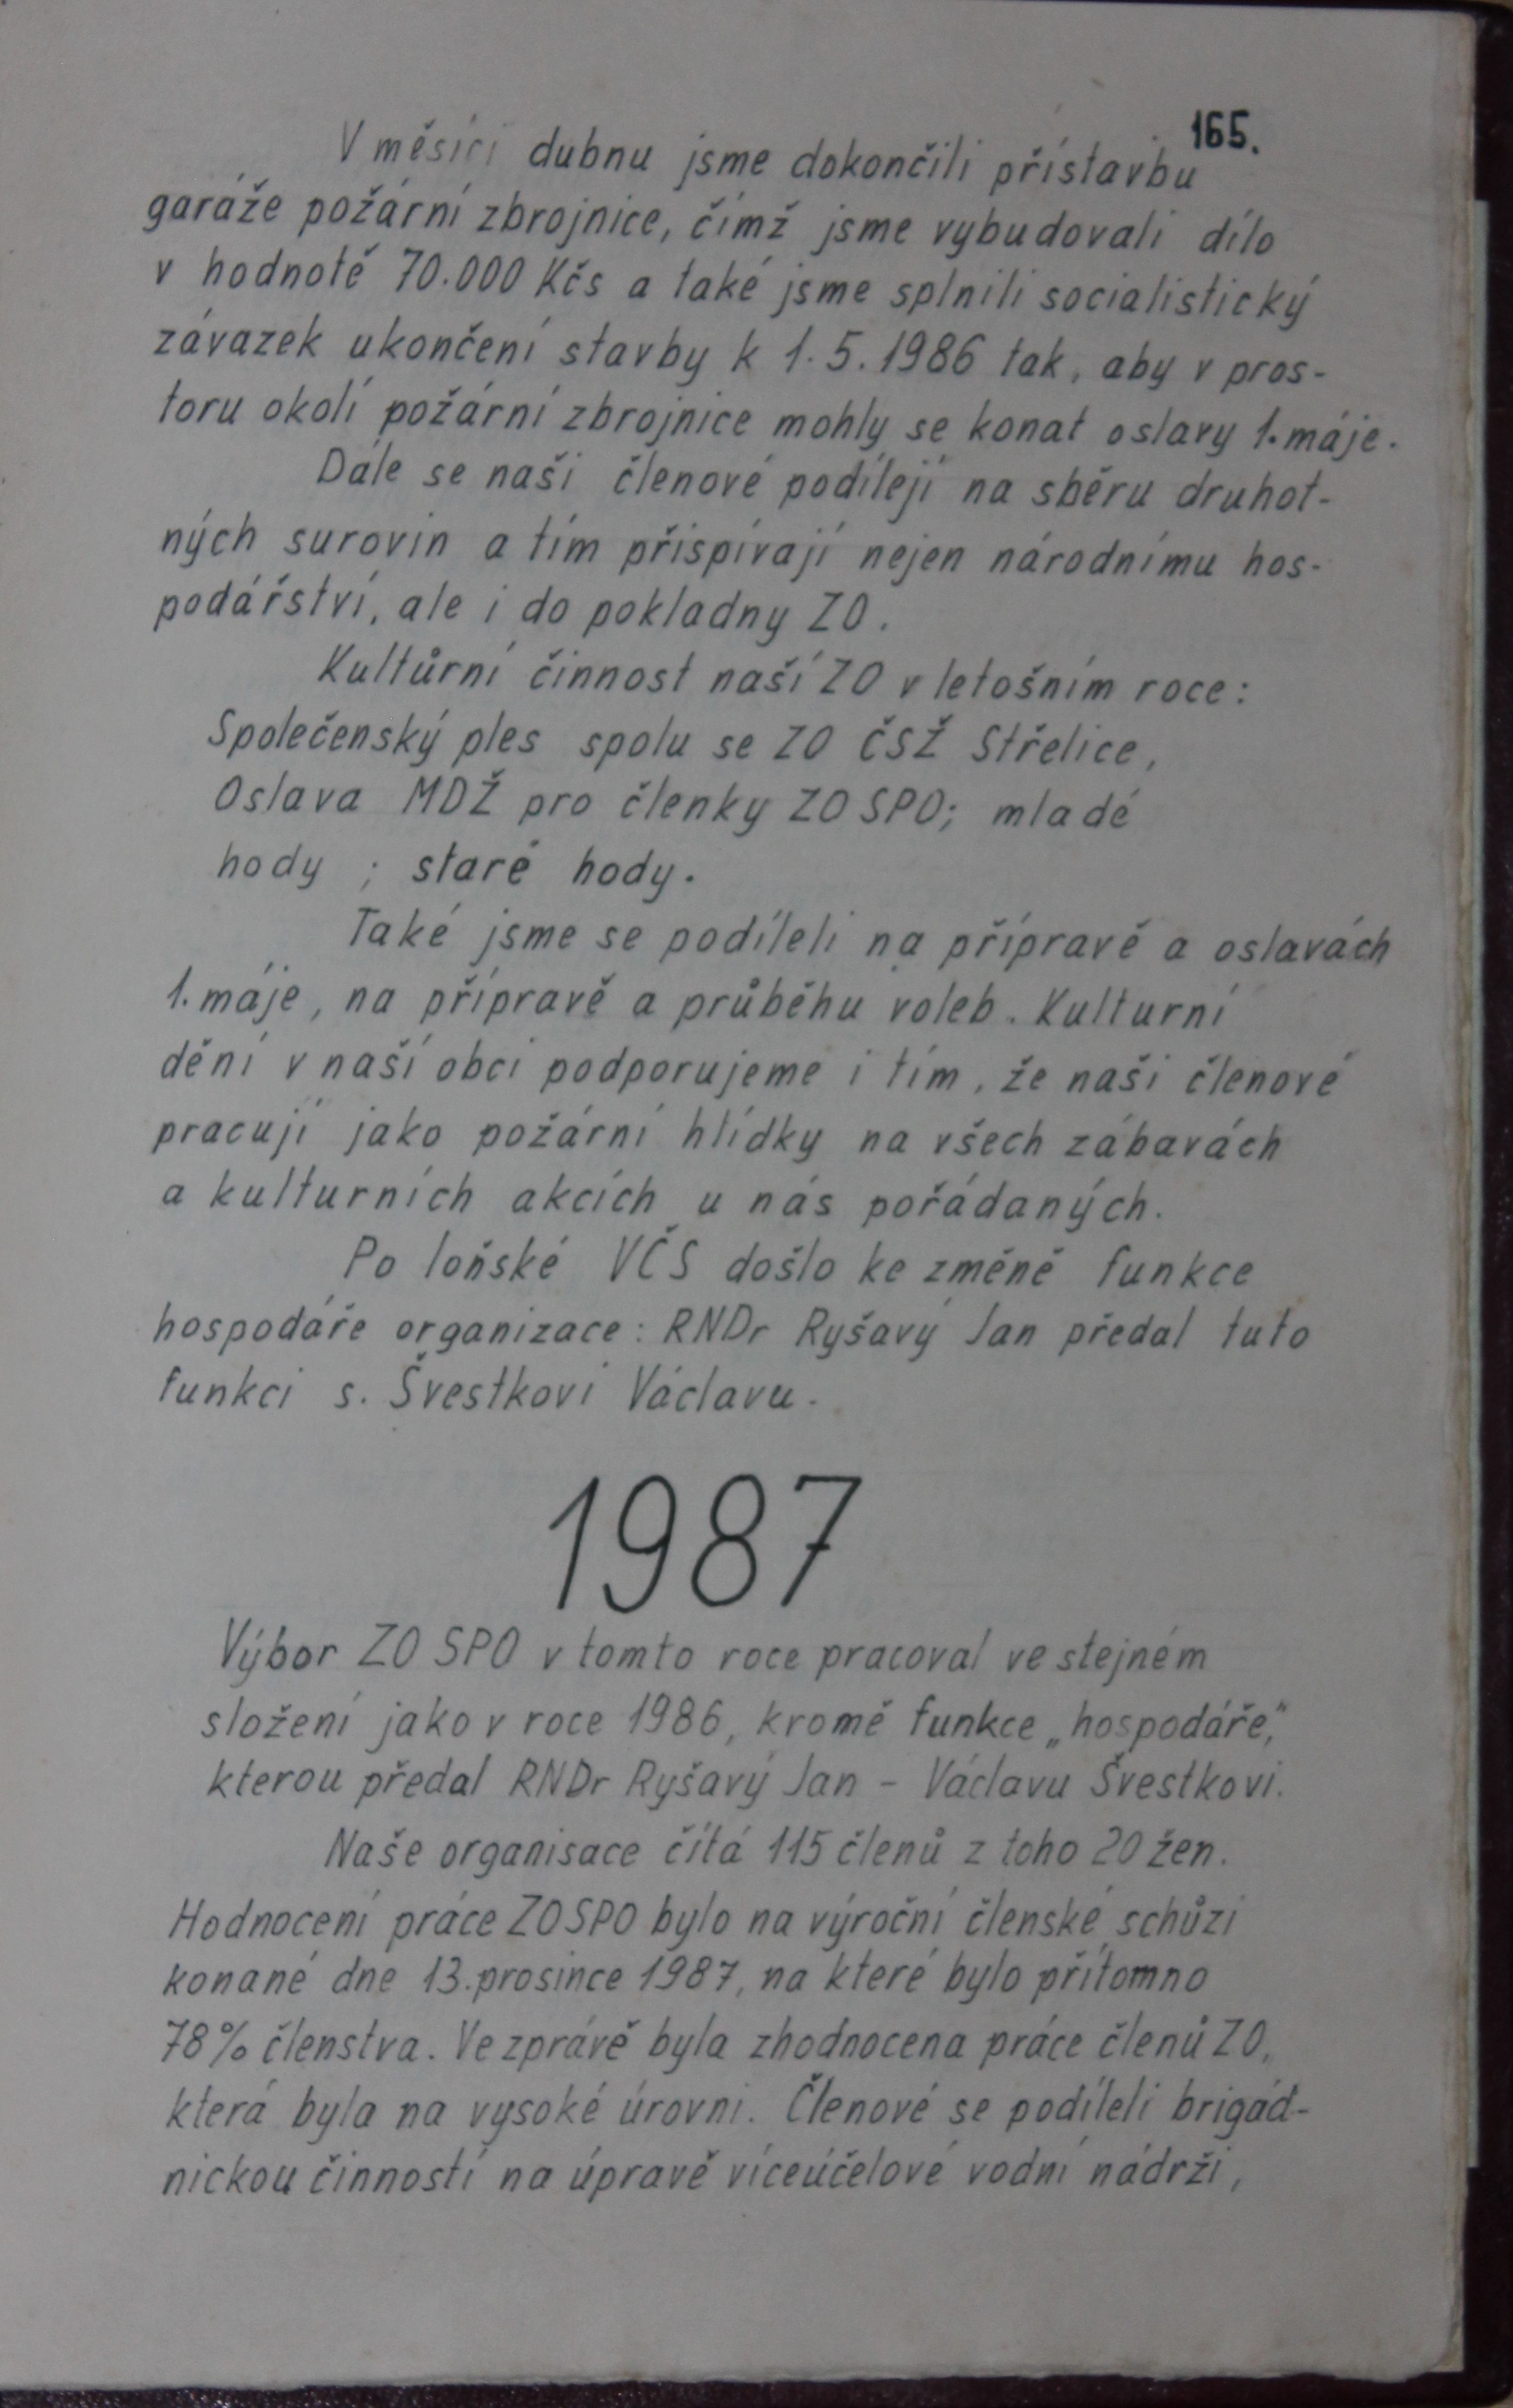 165.
V měsíci dubnu jsme dokončili přístavbu
garáže požární zbrojnice, čímž jsme vybudovali dílo
v hodnotě 70.000 Kčs a také jsme splnili socialistický
závazek ukončení stavby k 1.5.1986 tak, aby v pros-
toru okolí požární zbrojnice mohly se konat oslavy 1. máje.
Dále se naši členové podílejí na sběru druhot-
ných surovin a tím přispívají nejen národnímu hos-
podářství, ale i do pokladny ZO.
Kultůrní činnost naší ZO v letošním roce:
Společenský ples spolu se ZO ČSŽ Střelice,
Oslava MDŽ pro členky ZO SPO; mladé
hody ; staré hody.
Také jsme se podíleli na přípravě a oslavách
1. máje, na přípravě a průběhu voleb. Kulturní
dění v naší obci podporujeme i tím, že naši členové
pracují jako požární hlídky na všech zábavách
a kulturních akcích u nás pořádaných.
Po loňské VČS došlo ke změně funkce
hospodáře organizace: RNDr Ryšavý Jan předal tuto
funkci s. Švestkovi Václavu.
1987
Výbor ZO SPO v tomto roce pracoval ve stejném
složení jako v roce 1986, kromě funkce „hospodáře,"
kterou předal RNDr Ryšavý Jan - Václavu Švestkovi.
Naše organisace čítá 115 členů z toho 20 žen.
Hodnocení práce ZO SPO bylo na výroční členské schůzi
konané dne 13. prosince 1987, na které bylo přítomno
78% členstva. Ve zprávě byla zhodnocena práce členů ZO,
která byla na vysoké úrovni. Členové se podíleli brigád-
nickou činností na úpravě víceúčelové vodní nádrži,